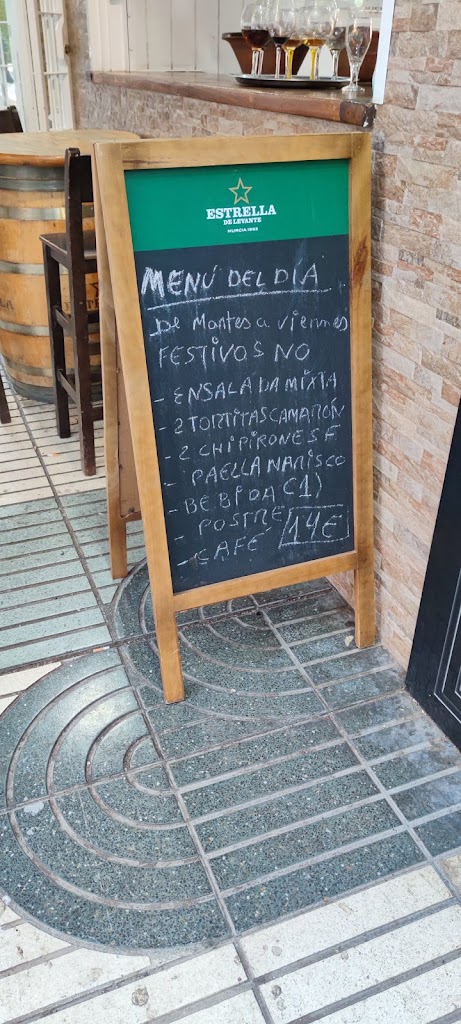 ESTRELLA
DE LEVANTE
MURCIA 1963
MENÚ DEL DIA
De Martes a viernes
FESTIVOS NO
- ENSALADA MIXTA
- 2 TORTITAS CAMARÓN
- 2 CHIPIRONES F
- PAELLA MARISCO
- BEBIDA (1)
- POSTRE
- CAFÉ 14€